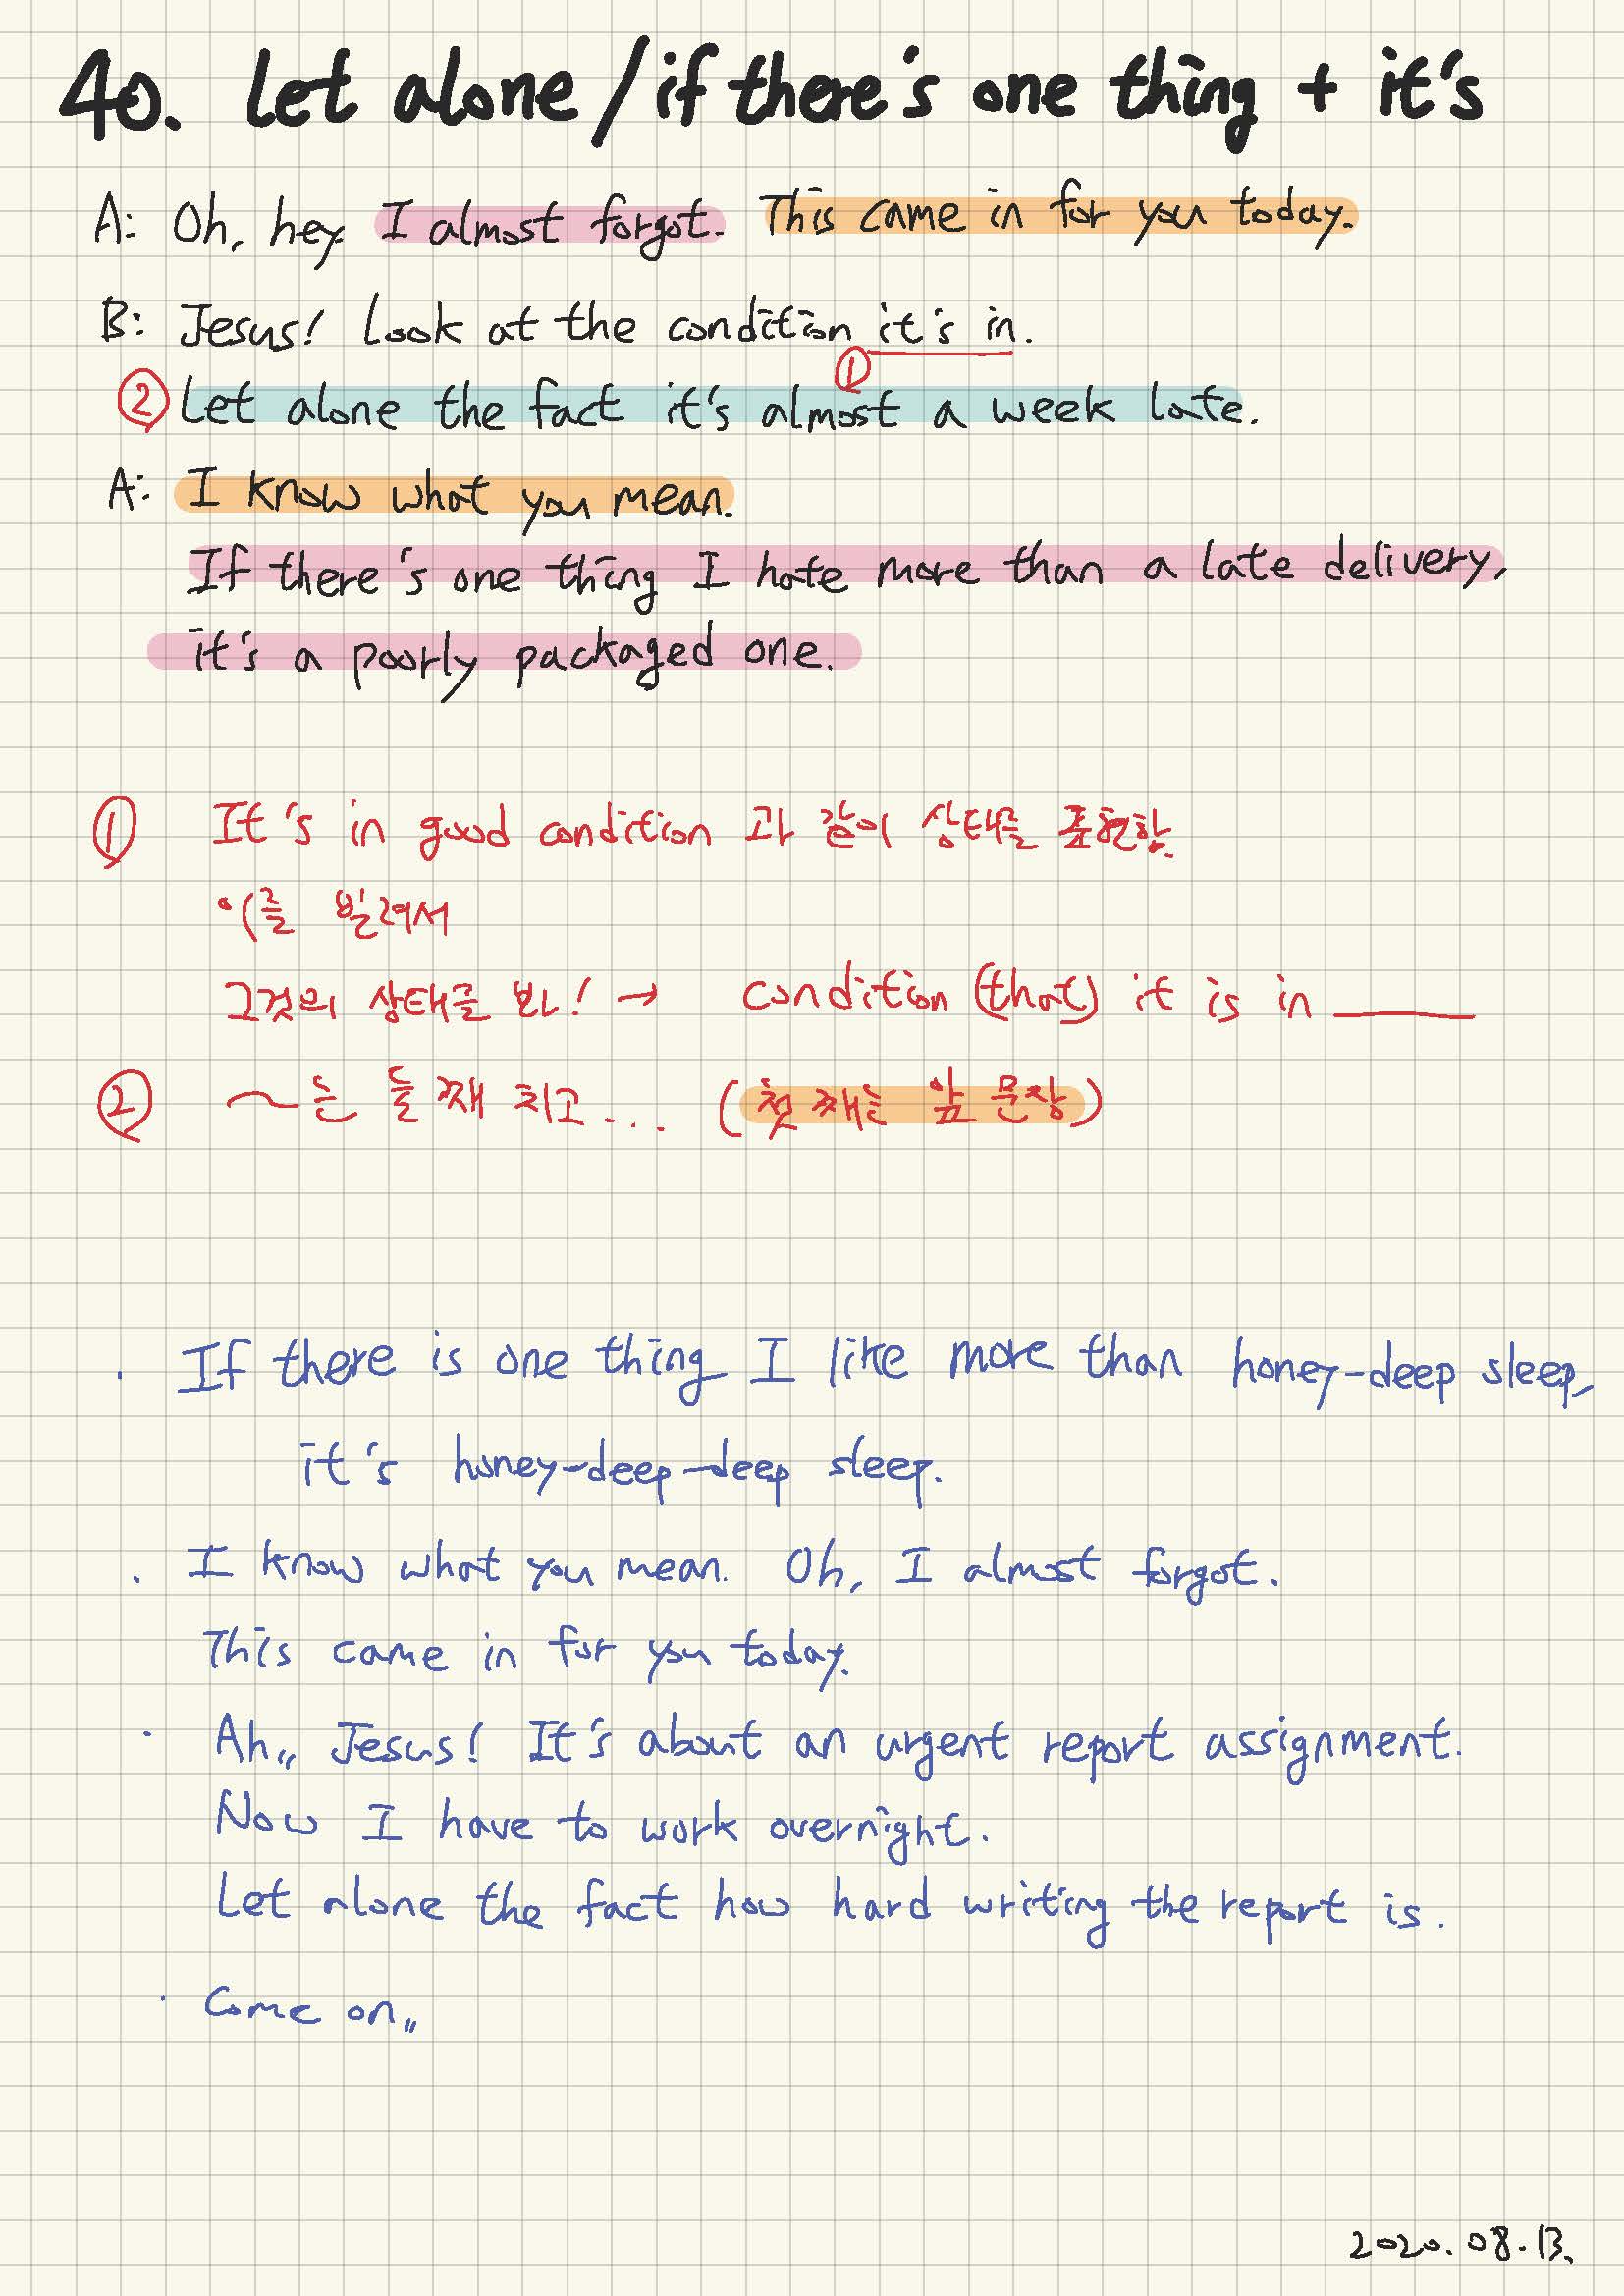 40. Let alone / if there's one thing + it's
A: Oh, hey. I almost forgot. This came in for you today.
B: Jesus! Look at the condition it's in.
①
② Let alone the fact it's almost a week late.
A: I know what you mean.
If there's one thing I hate more than a late delivery,
it's a poorly packaged one.
① It's in good condition 과 같이 상태를 표현함.
이를 빌려서
그것의 상태를 봐! → condition (that) it is in ____
② ~는 둘째 치고... (첫째는 앞 문장)
· If there is one thing I like more than honey-deep sleep,
it's honey-deep-deep sleep.
· I know what you mean. Oh, I almost forgot.
This came in for you today.
· Ah,, Jesus! It's about an urgent report assignment.
Now I have to work overnight.
Let alone the fact how hard writing the report is.
· Come on,,
2020.08.13.